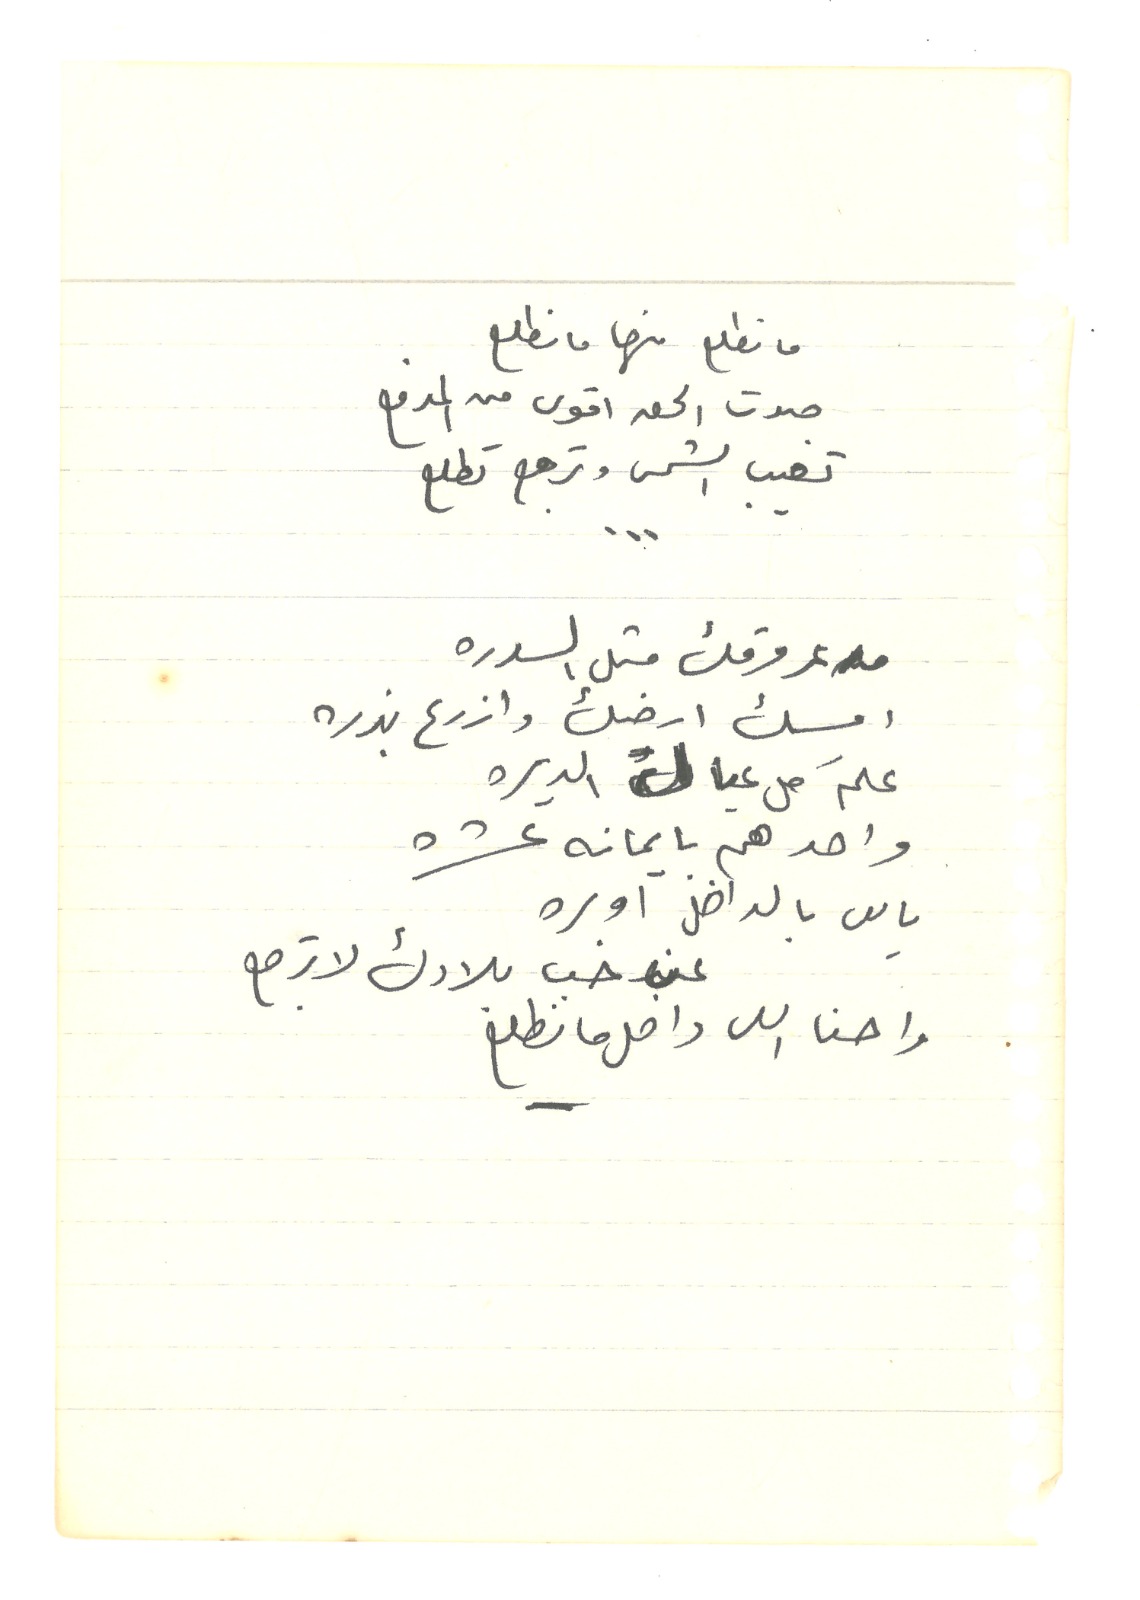 ما نطلع منها ما نطلع
صوت الحق اقوى من المدفع
تغيب الشمس وترجع تطلع
...
مد عروقك مثل السدره
امسك ارضك وازرع بذره
علم كل عيال الديره
واحدهم بايمانه عشره
ياللي بالداخل
عند حب بلادك لا ترجع
واحنا اللي داخل ما نطلع